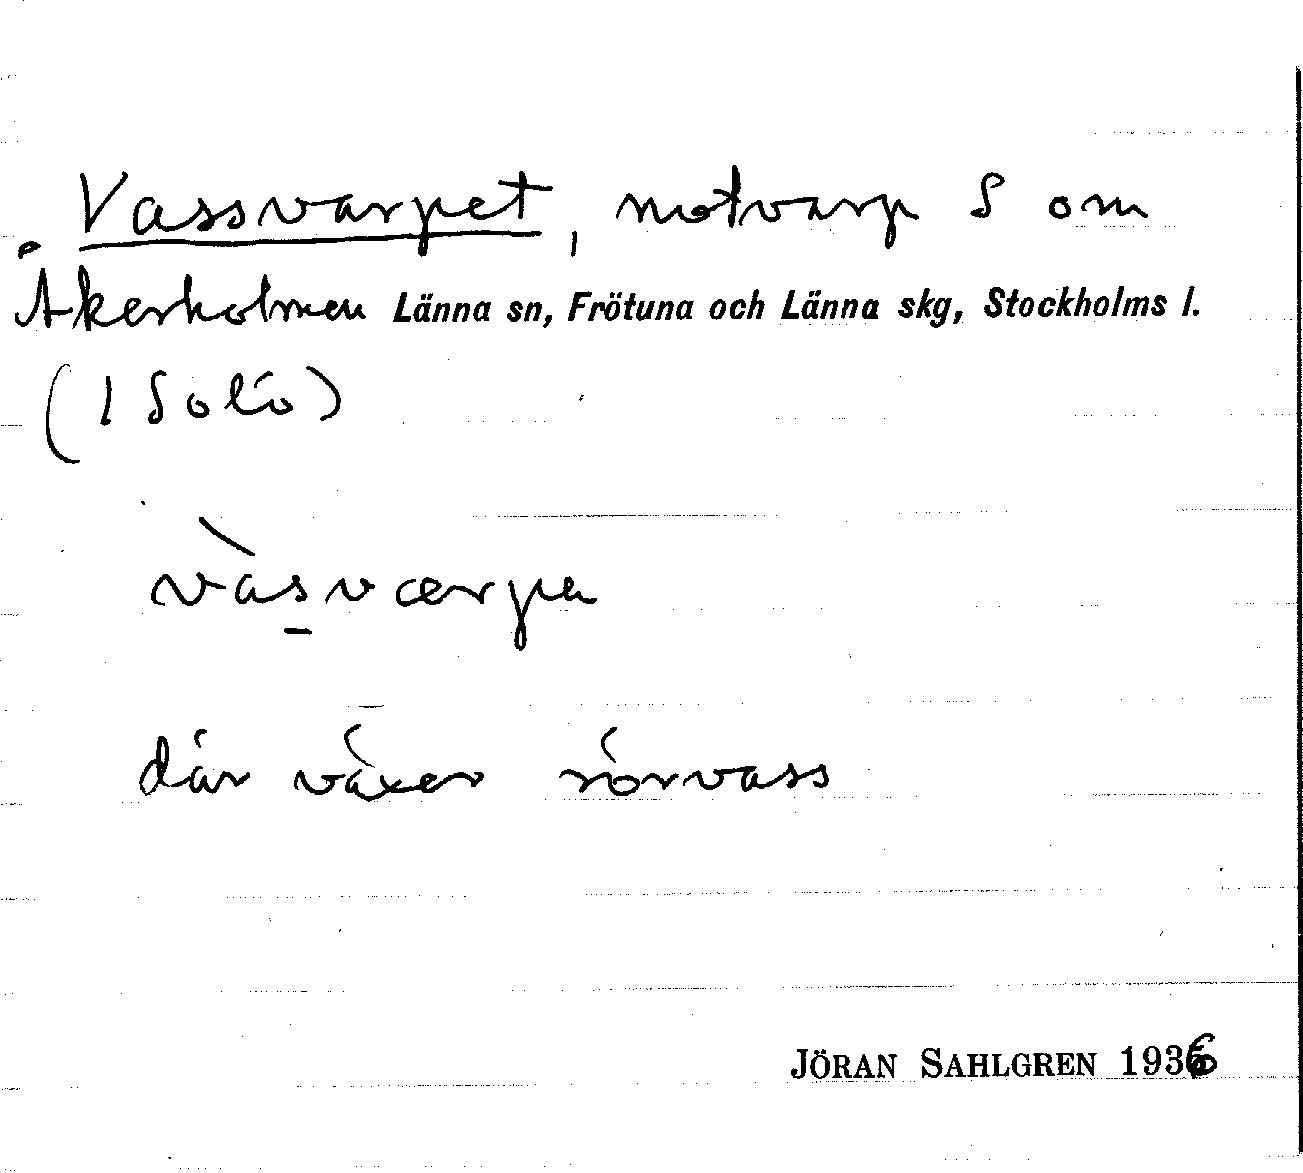 Vassvarpet, notvarp S om
Åkerholmen Länna sn, Frötuna och Länna skg, Stockholms l.
(I Solö)
vàsværpa
där växer rörvass
JÖRAN SAHLGREN 1936